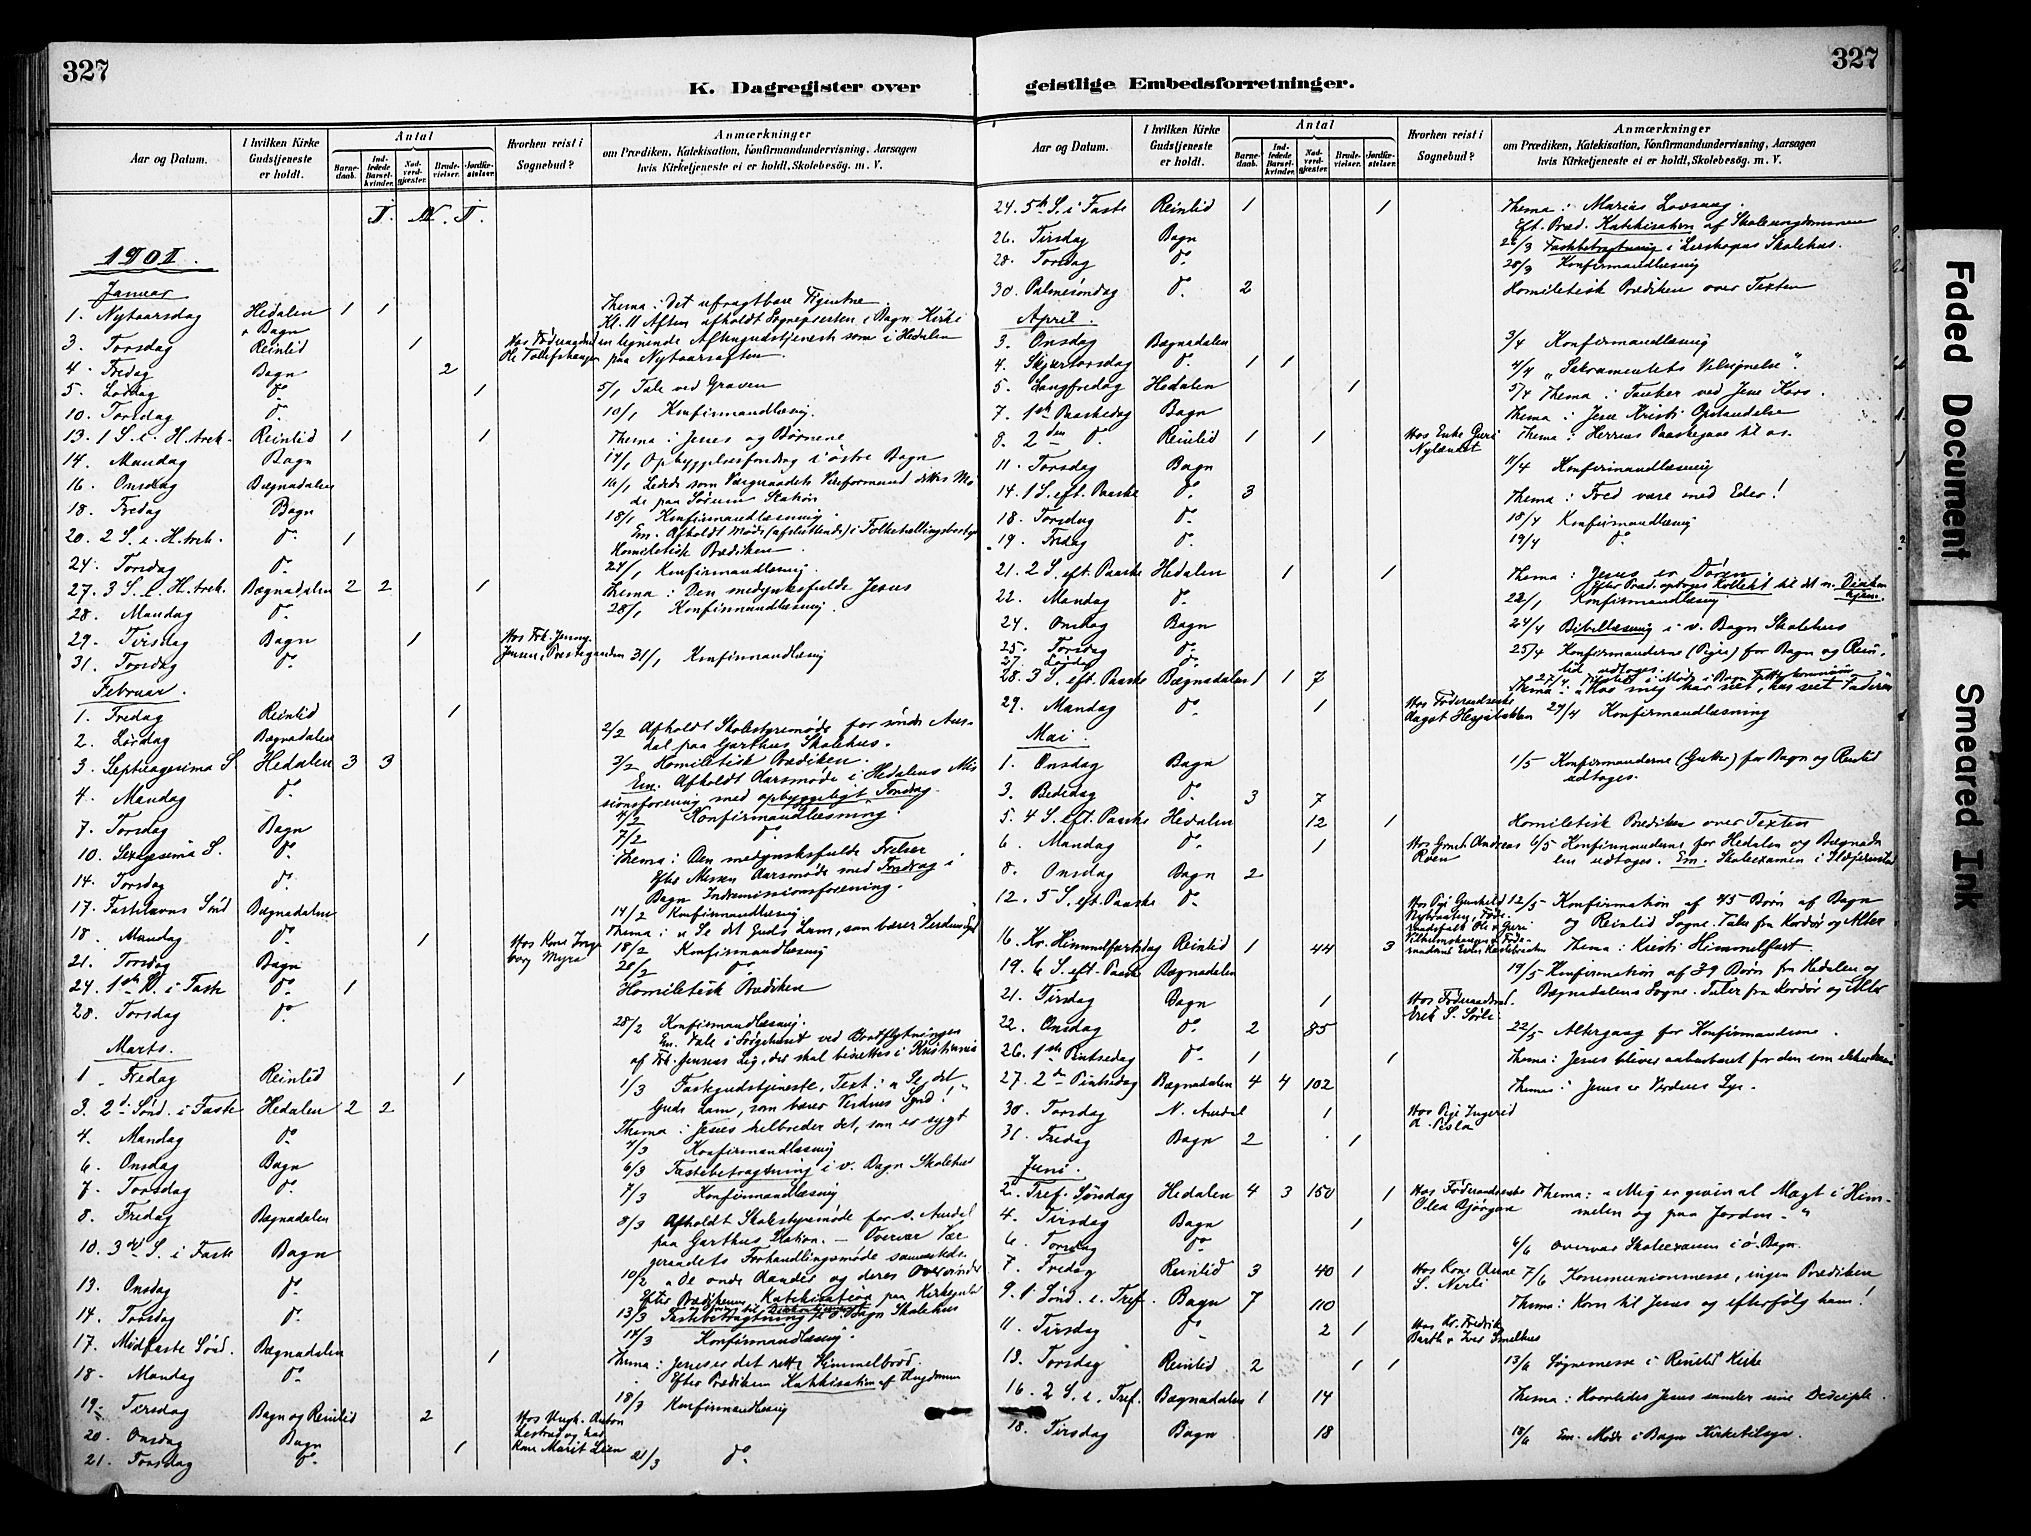 327
K. Dagregister over
Aar og Datum.
I hvilken Kirke Gudstjeneste er holdt.
Antal
Barnedaab.
Indledede Barselkvinder.
Nadverdgjester.
Brudevielser.
Jordfæstelser.
Hvorhen reist i Sognebud?
Anmærkninger
om Prædiken, Katekisation, Konfirmandundervisning, Aarsagen
hvis Kirketjeneste ei er holdt, Skolebesøg. m. V.
I. N. I.
1901.
Januar
1. Nytaarsdag Hedalen 1 1 Thema: Det ufragtbare Figentræ
+ Bagn Kl. 11 Aften afholdt Sognepresten i Bagn Kirke
3. Torsdag Reinlid 1 en lignende Aftengudstjeneste som i Hedalen
4. Fredag Bagn 2 paa Nytaarsaften.
5. Lørdag do. 1 5/1 Tale ved Graven
10. Torsdag do. 10/1 Konfirmandlæsnig.
13. 1 S. e. H. trek. Reinlid 1 1 Thema: Jesus og Børnene
14. Mandag Bagn 14/1 Opbyggelsesforedrag i østre Bagn
16. Onsdag Bægnadalen 16/1 Ledede som Værgeraadets Viceformand dettes Mø-
de paa Sørum Station
18. Fredag Bagn 18/1 Konfirmandlæsnig.
Em. Afholdt Møde (afsluttende) i Folketællingsbestyr
20. 2 S. e. H. trek. do. 1 Homiletisk Prædiken.
24. Torsdag do. 24/1 Konfirmandlæsnig.
27. 3 S. e. H. trek. Bægnadalen 2 2 1 Thema: Den medynksfulde Jesus
28. Mandag do. 28/1 Konfirmandlæsnig.
29. Tirsdag Bagn 1 Hos Frk. Jenny Jensen, Prestegaarden
31. Torsdag do. 31/1 Konfirmandlæsnig
Februar.
1. Fredag Reinlid 1
2. Lørdag Bægnadalen 2/2 Afholdt Skolestyremøde for søndre Aur-
dal paa Garthus Skolehus.
3. Septuagesima S. Hedalen 3 3 3/2 Homiletisk Prædiken.
Em. Afholdt Aarsmøde i Hedalens Mis-
sionsforening med opbyggeligt Foredrag.
4. Mandag do. 4/2 Konfirmandlæsning.
7. Torsdag Bagn 7/2 do.
10. Sexagesima S. do. Thema: Den medynksfulde Frelser
Efter Messen Aarsmøde med Foredrag i
Bagn Indremissionsforening.
14. Torsdag do. 14/2 Konfirmandlæsnig
17. Fastelavns Sønd Bægnadalen Thema: "Se det Guds Lam, som bærer Verdens Synd
18. Mandag do. 1 Hos Kone Ingeborg Myra 18/2 Konfirmandlæsnig
21. Torsdag Bagn 21/2 do.
24. 1ste S. i Faste do. 1 Homiletisk Prædiken
28. Torsdag do. 28/2 Konfirmandlæsnig.
Em. Tale i Sørgehuset ved Bortflytningen
af Frk. Jensens Lig, der skal bisættes i Kristiania
Marts.
1. Fredag Reinlid 1 1/3 Fastegudstjeneste, Text: "Se, det
Guds Lam, som bærer Verdens Synd!"
3. 2d. Sønd. i Faste Hedalen 2 2 Thema: Jesus helbreder det, som er sygt
4. Mandag do. 4/3 Konfirmandlæsnig
6. Onsdag Bagn 6/3 Fastebetragtning i v. Bagn Skolehus
7. Torsdag do. 7/3 Konfirmandlæsnig
8. Fredag Bægnadalen 8/3 Afholdt Skolestyremøde for s. Aurdal
paa Garthus Station. — Overvar Vær-
geraadets Forhandlingsmøde sammesteds.
10. 3die S. i Faste Bagn 10/3 "De onde Aander og deres Overvinder
Efter Prædikenen Katekisation paa Kirkegulv
13. Onsdag do. 13/3 Fastebetragtning i ø. Bagn Skolehus
14. Torsdag do. 14/3 Konfirmandlæsnig.
17. Midfaste Sønd. Bægnadalen 1 Thema: Jesus er det rette Himmelbrød.
Efter Prædiken Katekisation af Ungdommen
18. Mandag do. 18/3 Konfirmandlæsnig
19. Tirsdag Bagn og Reinlid 2 Hos Ungk. Anton
20. Onsdag Bagn Kone Marit Lien
21. Torsdag do. 1 21/3 do.
327
geistlige Embedsforretninger.
Aar og Datum.
I hvilken Kirke Gudstjeneste er holdt.
Antal
Barnedaab.
Indledede Barselkvinder.
Nadverdgjester.
Brudevielser.
Jordfæstelser.
Hvorhen reist i Sognebud?
Anmærkninger
om Prædiken, Katekisation, Konfirmandundervisning, Aarsagen
hvis Kirketjeneste ei er holdt, Skolebesøg. m. V.
24. 5te S. i Faste Reinlid 1 1 Thema: Marias Lovsang.
Eft. Præd. Katekisation af Skoleungdommen
26. Tirsdag Bagn 26/3 Fastebetragtning i Leirskogens Skolehus.
28. Torsdag do. 28/3 Konfirmandlæsnig
30. Palmesøndag do. 2 Homiletisk Prædiken over Texten
April.
3. Onsdag Bægnadalen 3/4 Konfirmandlæsnig
4. Skjærtorsdag do. 1 1 4/4 "Sakramentets Velsignelse".
5. Langfredag Hedalen 1 5/4 Thema: Tanker ved Jesu Kors.
7. 1ste Paaskedag Bagn Thema: Jesu Kristi Opstandelse
8. 2den do. Reinlid 1 1 Hos Enke Guri Thema: Herrens Paaskegave til os.
11. Torsdag Bagn 11/4 Konfirmandlæsnig
14. 1 S. eft. Paaske do. 3 Thema: Fred være med Eder!
18. Torsdag do. 18/4 Konfirmandlæsnig
19. Fredag do. 19/4 do.
21. 2 S. eft. Paaske Hedalen 1 1 Thema: Jesus er Døren.
Efter Præd. optoges Kollekt til det n. Diakonhjem.
22. Mandag do. 22/1 Konfirmandlæsnig
24. Onsdag Bagn 24/4 Bibellæsning i v. Bagn Skolehus
25. Torsdag do. 25/4 Konfirmanderne (Piger) for Bagn og Rein-
lid udtoges.
27. Lørdag do.
28. 3 S. eft. Paaske Bægnadalen 1 1 7 Thema: "Hvo mig har seet, har seet Faderen"
29. Mandag do. 1 29/4 Konfirmandlæsning
Mai.
1. Onsdag Bagn 1/5 Konfirmanderne (Gutter) for Bagn og Reinlid
udtoges.
3. Bededag do. 3 7
5. 4 S. eft. Paaske Hedalen 12 1 Homiletisk Prædiken over Texten
6. Mandag do. 1 Hos Grmd. Andreas Roen 6/5 Konfirmanderne for Hedalen og Bægnada-
len udtoges. Em. Skoleexamen i
8. Onsdag Bagn 2
12. 5 S. eft. Paaske do. 12/5 Konfirmation af 45 Børn af Bagn
og Reinlid Sogne. Tale fra Kordør og Alter
16. Kr. Himmelfartsdag Reinlid 1 44 3 Thema: Kristi Himmelfart
19. 6 S. eft. Paaske Bægnadalen 19/5 Konfirmation af 39 Børn fra Hedalen og
Bægnadalens Sogne. Taler fra Kordør og Alter
21. Tirsdag Bagn 1
22. Onsdag do. 2 85 22/5 Altergang for Konfirmanderne.
26. 1ste Pintsedag do. 1 1 Thema: Jesus bliver aabenbaret for den som elsker ham
27. 2den Pintsedag Bægnadalen 4 4 102 Thema: Jesus er Verdens Lys.
30. Torsdag N. Aurdal 1 Hos Pige Ingerid
31. Fredag Bagn 2 1
Juni.
2. Tref. Søndag Hedalen 4 3 150 1 Hos Føderaadsenke Olea Bjørgen Thema: "Mig er given al Magt i Him-
melen og paa Jorden."
4. Tirsdag Bagn 1
6. Torsdag do. 6/6 Overvar Skoleexamen i ø. Bagn.
7. Fredag Reinlid 3 40 1 Hos Kone Anne 7/6 Kommunionsmesse, ingen Prædiken
9. 1 Sønd. e. Tref. Bagn 7 110 Thema: Kom til Jesus og efterfølg ham!
11. Tirsdag do. 2 1 Hos Kr. Fredrik Barth + Iver Smelhus
13. Torsdag Reinlid 2 1 1 13/6 Søgnemesse i Reinlid Kirke
16. 2 S. e. Tref. Bægnadalen 1 14 Thema: Hvorledes Jesus samler sine Disciple.
18. Tirsdag Bagn 18 18/6 Em. Møde i Bagn Kirketilsyn.
Faded Document
Smeared Ink